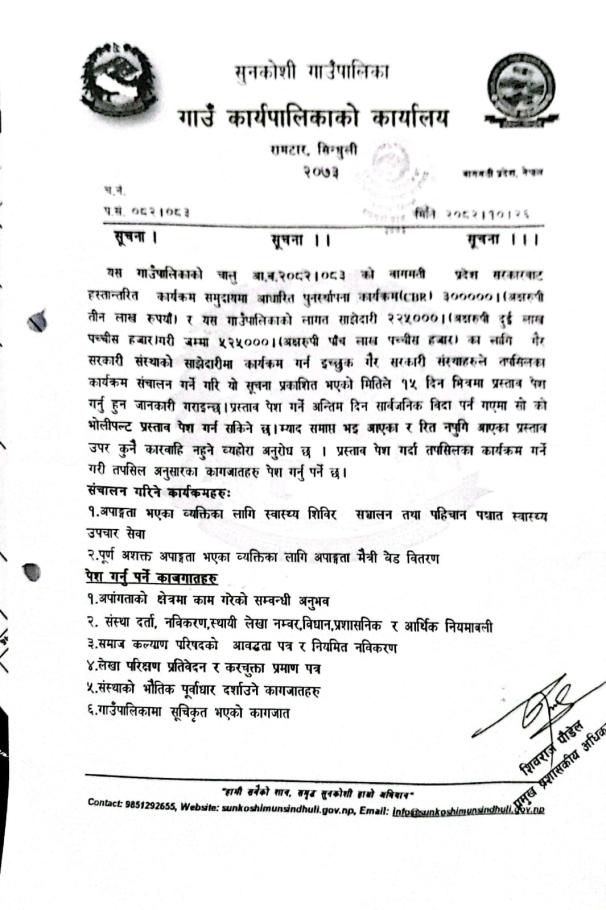 सुनकोशी गाउँपालिका
गाउँ कार्यपालिकाको कार्यालय
रामटार, सिन्धुली
२०७३
बागमती प्रदेश, नेपाल
च.नं.
प.सं. ०८२।०८३
मिति २०८२।१०।२६
सूचना । सूचना ।। सूचना ।।।
यस गाउँपालिकाको चालु आ.व.२०८२।०८३ को बागमती प्रदेश सरकारबाट
हस्तान्तरित कार्यक्रम समुदायमा आधारित पुनर्स्थापना कार्यक्रम(CBR) ३०००००।(अक्षरुपी
तीन लाख रुपयाँ) र यस गाउँपालिकाको लागत साझेदारी २२५०००।(अक्षरुपी दुई लाख
पच्चीस हजार)गरी जम्मा ५२५०००।(अक्षरुपी पाँच लाख पच्चीस हजार) का लागि गैर
सरकारी संस्थाको साझेदारीमा कार्यक्रम गर्न इच्छुक गैर सरकारी संस्थाहरुले तपसिलका
कार्यक्रम संचालन गर्ने गरि यो सूचना प्रकाशित भएको मितिले १५ दिन भित्रमा प्रस्ताव पेश
गर्नु हुन जानकारी गराइन्छ।प्रस्ताव पेश गर्ने अन्तिम दिन सार्वजनिक बिदा पर्न गएमा सो को
भोलीपल्ट प्रस्ताव पेश गर्न सकिने छ।म्याद समाप्त भइ आएका र रित नपुगि आएका प्रस्ताव
उपर कुनै कारवाहि नहुने व्यहोरा अनुरोध छ । प्रस्ताव पेश गर्दा तपसिलका कार्यक्रम गर्ने
गरी तपसिल अनुसारका कागजातहरु पेश गर्नु पर्ने छ।
संचालन गरिने कार्यक्रमहरुः
१.अपाङ्गता भएका व्यक्तिका लागि स्वास्थ्य शिविर सञ्चालन तथा पहिचान पश्चात स्वास्थ्य
उपचार सेवा
२.पूर्ण अशक्त अपाङ्गता भएका व्यक्तिका लागि अपाङ्गता मैत्री बेड वितरण
पेश गर्नु पर्ने काजगातहरु
१.अपांगताको क्षेत्रमा काम गरेको सम्वन्धी अनुभव
२. संस्था दर्ता, नविकरण,स्थायी लेखा नम्वर,विधान,प्रशासनिक र आर्थिक नियमावली
३.समाज कल्याण परिषदको आवद्धता पत्र र नियमित नविकरण
४.लेखा परिक्षण प्रतिवेदन र करचुक्ता प्रमाण पत्र
५.संस्थाको भौतिक पूर्वाधार दर्शाउने कागजातहरु
६.गाउँपालिकामा सूचिकृत भएको कागजात
शिवराज पौडेल
प्रमुख प्रशासकीय अधिका
"हामी सबैको शान, समृद्ध सुनकोशी हाम्रो अभियान"
Contact: 9851292655, Website: sunkoshimunsindhuli.gov.np, Email: info@sunkoshimunsindhuli.gov.np